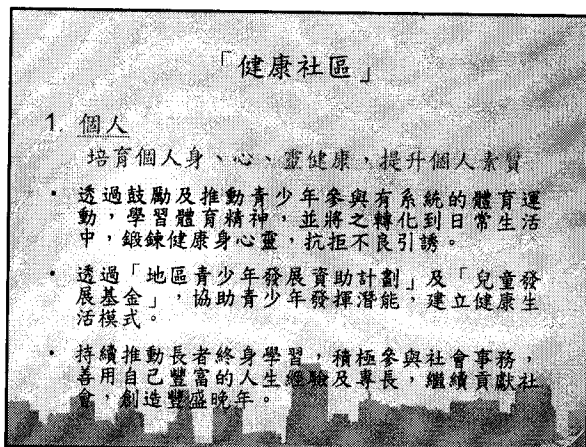 「健康社區」
1. 個人
培育個人身、心、靈健康，提升個人素質
• 透過鼓勵及推動青少年參與有系統的體育運
動，學習體育精神，並將之轉化到日常生活
中，鍛鍊健康身心靈，抗拒不良引誘。
• 透過「地區青少年發展資助計劃」及「兒童發
展基金」，協助青少年發揮潛能，建立健康生
活模式。
• 持續推動長者終身學習，積極參與社會事務，
善用自己豐富的人生經驗及專長，繼續貢獻社
會，創造豐盛晚年。